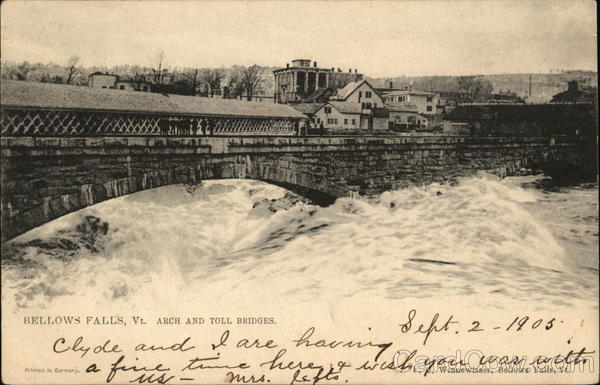 BELLOWS FALLS, Vt. ARCH AND TOLL BRIDGES.
Sept. 2 - 1905
Clyde and I are having
a fine time here & wish you was with
us — Mrs.
Printed in Germany.
Winnewisser, Bellows Falls, Vt.
CardCow.com